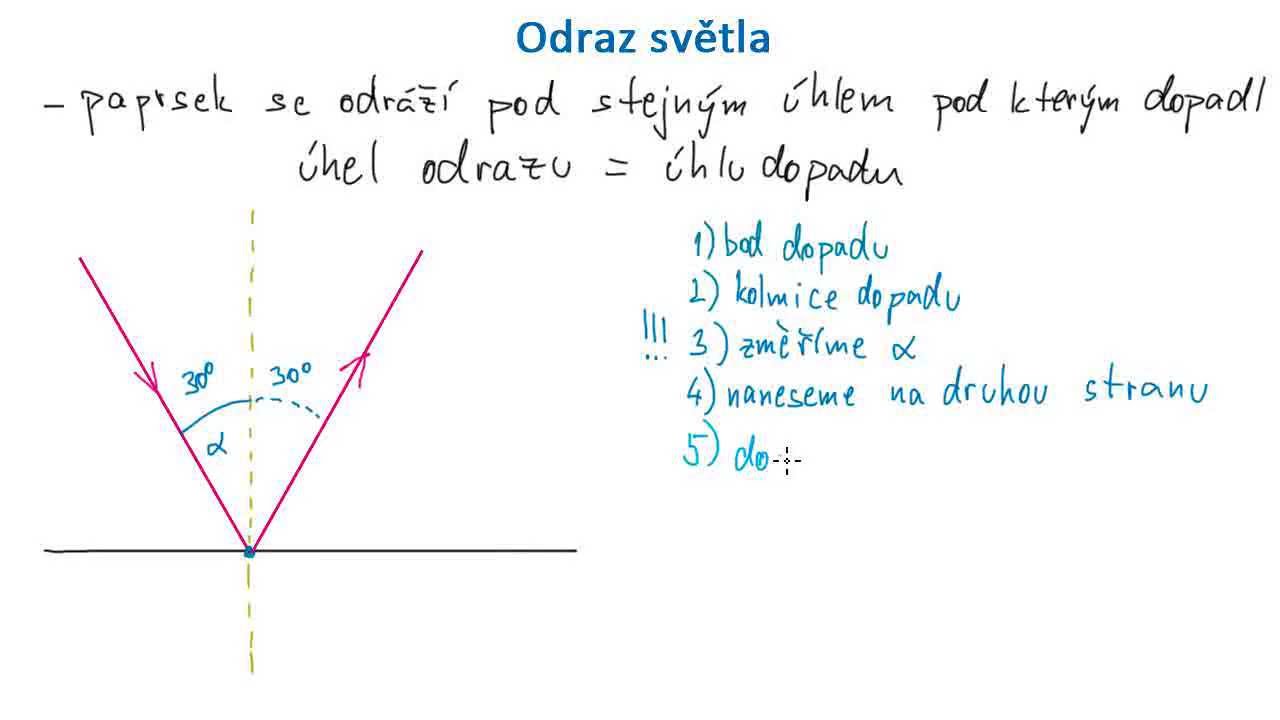 Odraz světla
- paprsek se odráží pod stejným úhlem pod kterým dopadl
úhel odrazu = úhlu dopadu
1) bod dopadu
2) kolmice dopadu
!!! 3) změříme α
4) naneseme na druhou stranu
5) do
30° 30°
α